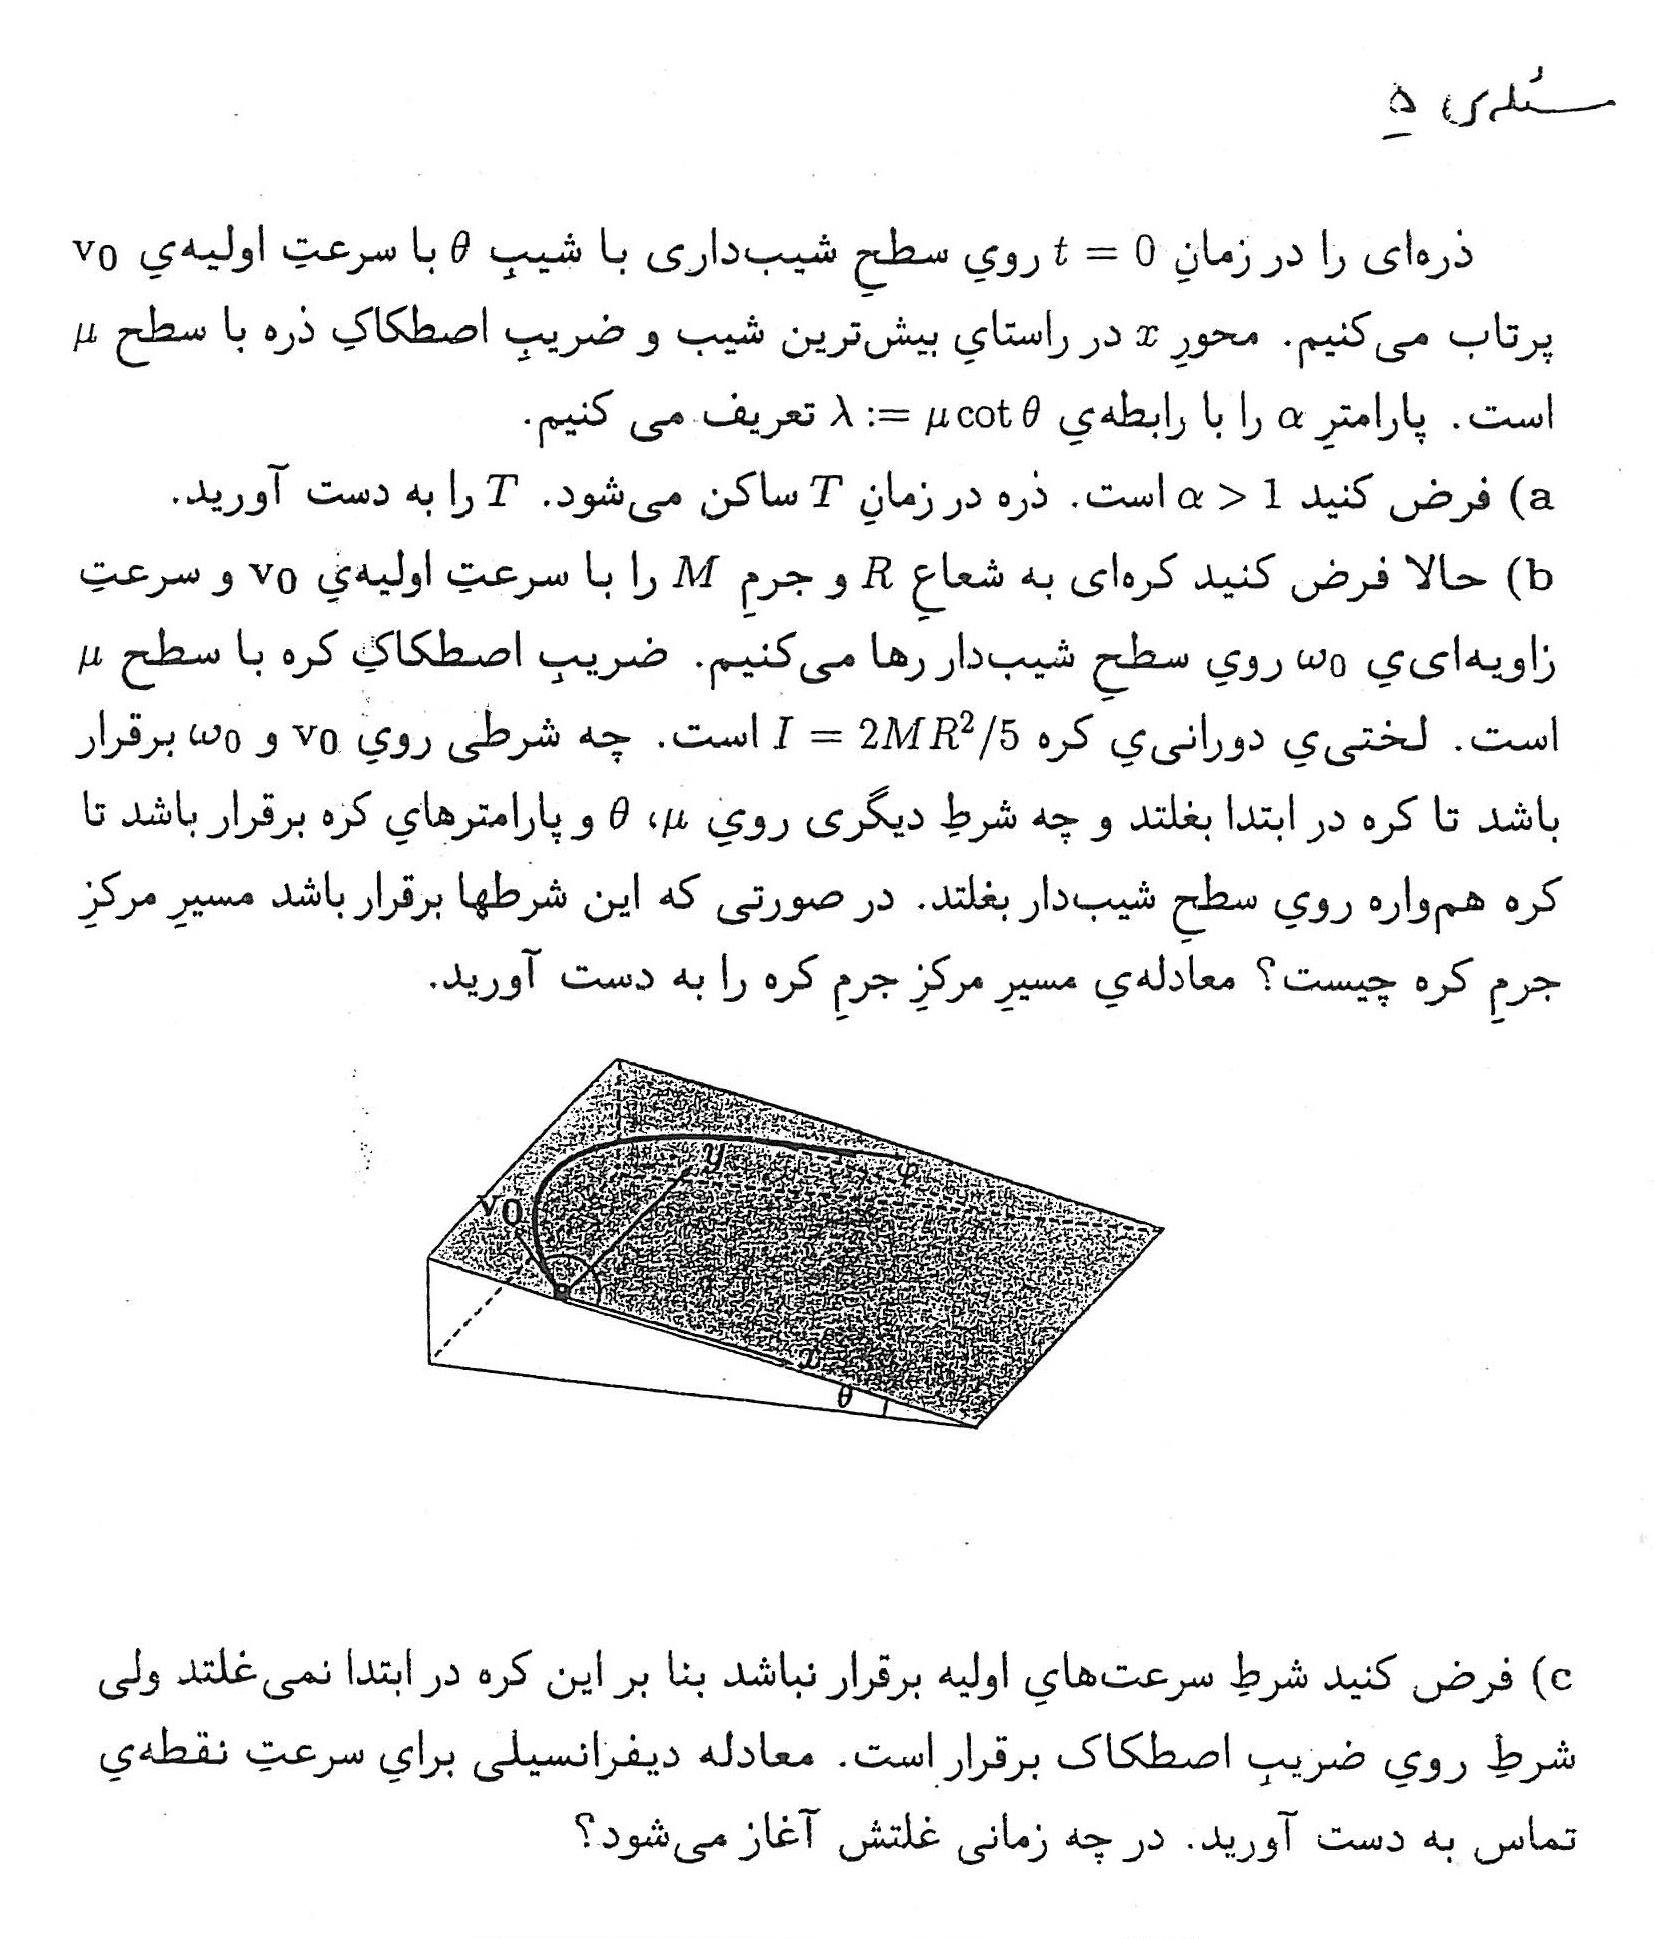 مسئله‌ی ۵
ذره‌ای را در زمانِ t = 0 رويِ سطحِ شیب‌داری با شیبِ θ با سرعتِ اولیه‌يِ v0
پرتاب می‌کنیم. محورِ x در راستايِ بیش‌ترین شیب و ضریبِ اصطکاکِ ذره با سطح μ
است. پارامترِ α را با رابطه‌يِ λ := μ cot θ تعریف می کنیم.
a) فرض کنید α > 1 است. ذره در زمانِ T ساکن می‌شود. T را به دست آورید.
b) حالا فرض کنید کره‌ای به شعاعِ R و جرمِ M را با سرعتِ اولیه‌يِ v0 و سرعتِ
زاویه‌ای‌يِ ω0 رويِ سطحِ شیب‌دار رها می‌کنیم. ضریبِ اصطکاکِ کره با سطح μ
است. لختی‌يِ دورانی‌يِ کره I = 2MR²/5 است. چه شرطی رويِ v0 و ω0 برقرار
باشد تا کره در ابتدا بغلتد و چه شرطِ دیگری رويِ μ، θ و پارامترهايِ کره برقرار باشد تا
کره هم‌واره رويِ سطحِ شیب‌دار بغلتد. در صورتی که این شرطها برقرار باشد مسیرِ مرکزِ
جرمِ کره چیست؟ معادله‌يِ مسیرِ مرکزِ جرمِ کره را به دست آورید.
y
φ
v0
x
θ
c) فرض کنید شرطِ سرعت‌هايِ اولیه برقرار نباشد بنا بر این کره در ابتدا نمی‌غلتد ولی
شرطِ رويِ ضریبِ اصطکاک برقرار است. معادله دیفرانسیلی برايِ سرعتِ نقطه‌يِ
تماس به دست آورید. در چه زمانی غلتش آغاز می‌شود؟